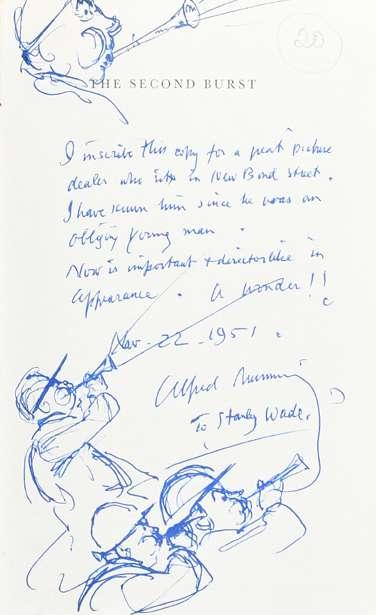 20
THE SECOND BURST
I inscribe this copy for a great picture
dealer who sits in New Bond Street.
I have known him since he was an
obliging young man.
Now is important + directorlike in
appearance. A wonder!!
Nov. 22 - 1951.
Alfred Munnings
To Stanley Wade.